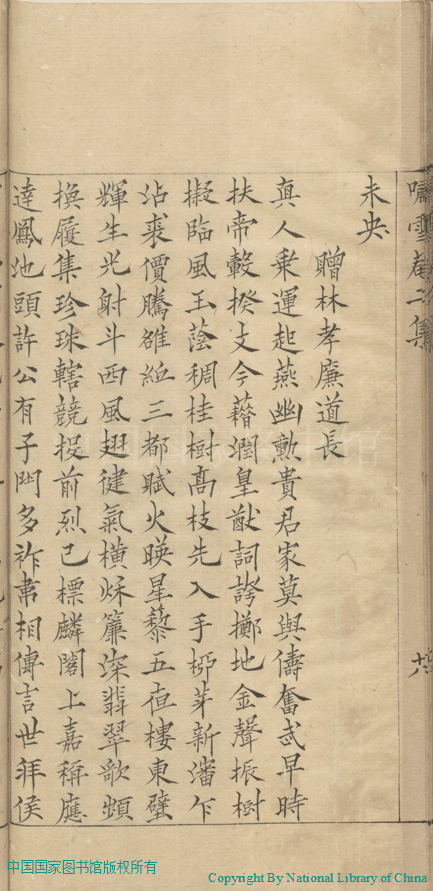 嘯雪菴二集
未央
贈林孝廉道長
眞人乘運起燕幽勲貴君家莫與儔奮武早時
扶帝轂揆文今藉潤皇猷詞誇擲地金聲振樹
擬臨風玉蔭稠桂樹高枝先入手柳芽新瀋乍
沾裘價騰雒紙三都賦火暎星藜五夜樓東壁
輝生光射斗西風翅健氣橫秌簾深翡翠歌頻
換履集珍珠轄競投前烈已標麟閣上嘉稱應
達鳳池頭許公有子門多祚韋相傳言世拜侯
中国国家图书馆版权所有
Copyright By National Library of China